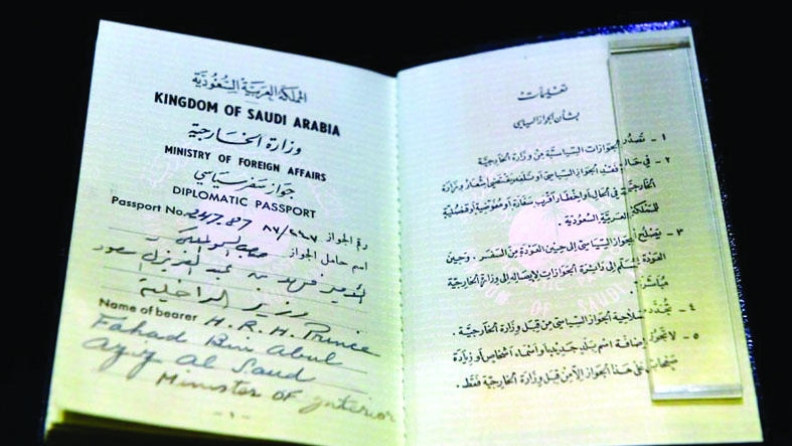 المملكة العربية السعودية
KINGDOM OF SAUDI ARABIA
وزارة الخارجية
MINISTRY OF FOREIGN AFFAIRS
جواز سفر سياسي
DIPLOMATIC PASSPORT
Passport No. 247.87 ٨٧/٢٤٧ رقم الجواز
اسم حامل الجواز صاحب السمو الملكي
الأمير فهد بن عبد العزيز آل سعود
وزير الداخلية
Name of bearer H. R. H. Prince
Fahad Bin Abdul
Aziz Al Saud
Minister OF Interior
- ١ -
تعليمات
بشأن الجواز السياسي
١ - تصدر الجوازات السياسية من وزارة الخارجية
٢ - في حالة فقد الجواز السياسي أو تلفه إشعار وزارة
الخارجية في الحال أو إشعار أقرب سفارة أو مفوضية أو قنصلية
للمملكة العربية السعودية .
٣ - يصلح الجواز السياسي إلى حين العودة من السفر . وحين
العودة يسلم إلى دائرة الجوازات لإيصاله إلى وزارة الخارجية
مباشرة .
٤ - تجدد صلاحية الجواز السياسي من قبل وزارة الخارجية .
٥ - لا تجوز إضافة اسم بلد جديد أو أسماء أشخاص أو زيادة
صفحات على هذا الجواز إلا من قبل وزارة الخارجية فقط .